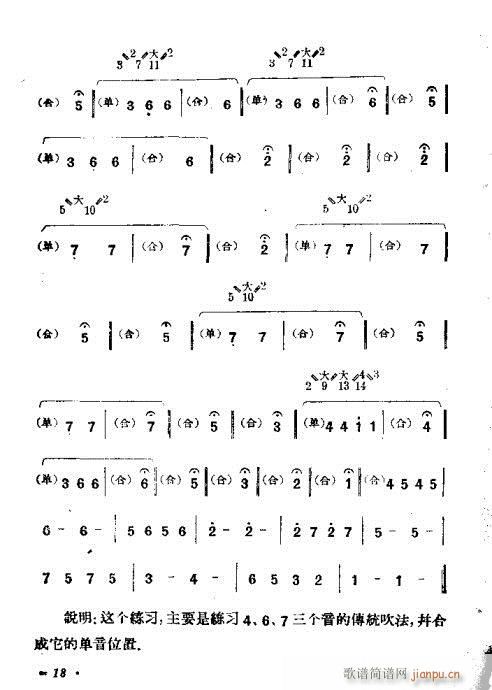 2 大 2 2 大 2
3 7 11 3 7 11
(合) 5 | (单) 3 6 6 | (合) 6 | (单) 3 6 6 | (合) 6 | (合) 5
(单) 3 6 6 | (合) 6 | (合) 2 | (合) 2 | (合) 2
大 2 大 2
5 10 5 10
(单) 7 7 | (合) 7 | (合) 2 | (单) 7 7 | (合) 7 | (合) 5
大 2
5 10
(合) 5 | (合) 5 | (单) 7 7 | (合) 7 | (合) 5
大 大 4 3
2 9 13 14
(单) 7 7 | (合) 7 | (合) 5 | (合) 3 | (单) 4 4 1 1 | (合) 4
(单) 3 6 6 | (合) 6 | (合) 5 | (合) 3 | (合) 2 | (合) 1 | 4 5 4 5
6 - 6 - | 5 6 5 6 | 2 - 2 - | 2 7 2 7 | 5 - 5 - |
7 5 7 5 | 3 - 4 - | 6 5 3 2 | 1 - 1 - |
說明：这个練习，主要是練习 4、6、7 三个音的傳統吹法，幷合
成它的单音位置．
18 ·
歌谱简谱网
jianpu.cn